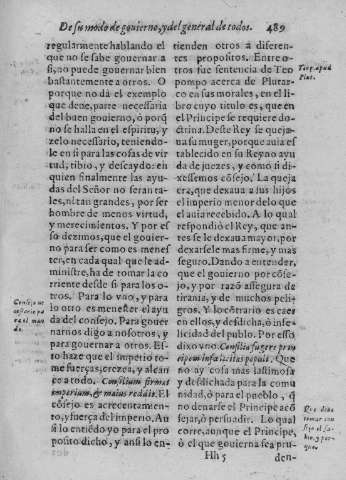 De su modo de gouierno, y del general de todos. 489
regularmente hablando el
que no se sabe gouernar a
si, no puede gouernar bien
bastantemente a otros. O
porque no dà el exemplo
que deue, parte necessaria
del buen gouierno, ò porq̃
no se halla en el espiritu, y
zelo necessario, teniendo-
le en si para las cosas de vir
tud, tibio, y descaydo: en
quien finalmente las ayu-
das del Señor no seran ta-
les, ni tan grandes, por ser
hombre de menos virtud,
y merecimientos. Y por es
so dezimos, que el gouier-
no para ser como es menes
ter, en cada qual que le ad-
ministre, ha de tomar la co
rriente desde si para los o-
tros. Para lo vno, y para
lo otro es menester el ayu
da del consejo. Para gouer-
narnos digo a nosotros, y
para gouernar a otros. Es-
to haze que el imperio to-
me fuerças, crezca, y alcan
ce a todo. Consilium firmat
imperium, & maius reddit. El
cõsejo es acrecentamien-
to, y fuerça del imperio. Au
si lo entiẽdo yo para el pro
posito dicho, y ansi lo en-
Consejo ne
cessario pa
ra el man
do.
tienden otros à diferen-
tes propositos. Entre o-
tros fue sentencia de Teo
pompo acerca de Plutar-
co en sus morales, en el li
bro cuyo titulo es, que en
el Principe se requiere do-
ctrina. Deste Rey se queja-
ua su muger, porque auia es
tablecido en su Reyno ayu
da de juezes, y como si di-
xessemos cõsejo. La queja
era, que dexaua a sus hijos
el imperio menor de lo que
el auia recebido. A lo qual
respondiò el Rey, que an-
tes se le dexaua mayor, por
dexarsele mas firme, y mas
seguro. Dando a entender,
que el gouierno por cõse-
jo, y por razõ assegura de
tirania, y de muchos peli-
gros. Y lo cõtrario es caer
en ellos, y desdicha, ò infe-
licidad del pueblo. Por esso
dixo vno. Consilia fugere prin
cipem infælicitas populi. Que
no ay cosa mas lastimosa
y desdichada para la comu
nidad, ò para el pueblo, q̃
no denarse el Principe acõ
sejar, ò persuadir. Lo qual
corre, aunque el Principe,
ò el que gouierna sea pru-
Teop. apud
Plut.
Que deue
tomar con
sejo el sa-
bio, y por-
que.
Hh 5 den-